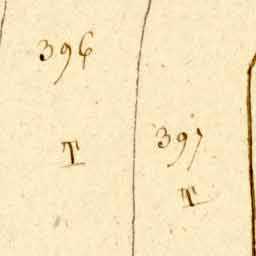 396
T
397
T